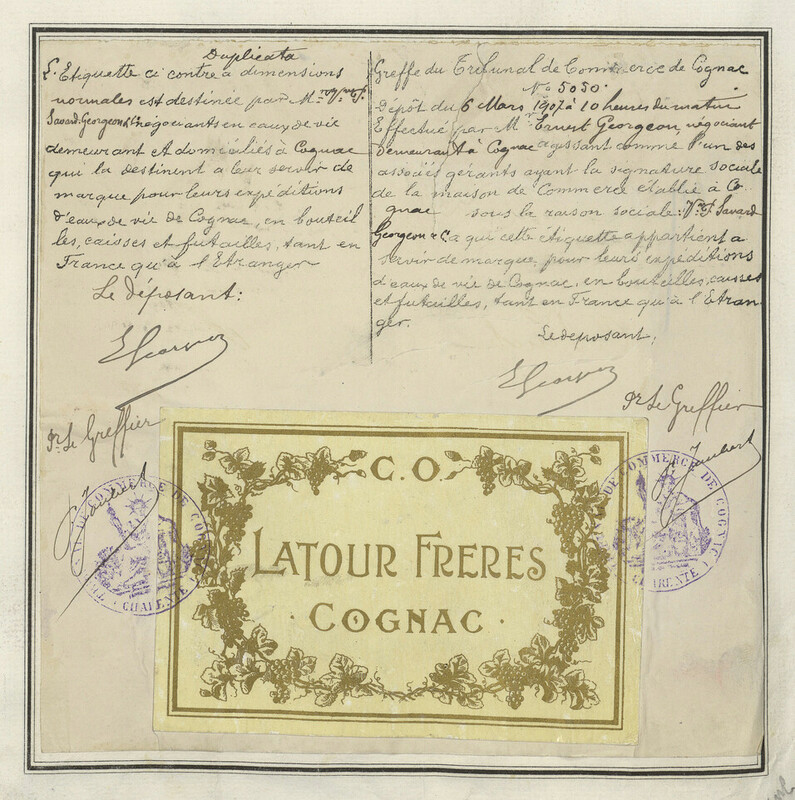 Duplicata
L'Etiquette ci contre a dimensions
normales est destinée par M
Savard Georgeon & négociants en eaux de vie
demeurant et domiciliés à Cognac
qui la destinent a leur servir de
marque pour leurs expéditions
d'eaux de vie de Cognac, en bouteil
les, caisses et futailles, tant en
France qu'à l'Etranger
Le déposant:
E Georgeon
Pr Le Greffier
Greffe du Tribunal de Commerce de Cognac
No 5050.
Dépôt du 6 Mars 1907 à 10 heures du matin
Effectué par Mr Ernest Georgeon, négociant
Demeurant à Cognac agissant comme l'un des
associés gérants ayant la signature sociale
de la maison de Commerce établie à Co
gnac sous la raison sociale: Ve P. Savard
Georgeon & Ca qui cette étiquette appartient a
servir de marque, pour leurs expéditions
d'eaux de vie de Cognac, en bouteilles, caisses
et futailles, tant en France qu'à l'Etran-
ger.
Le déposant,
E Georgeon
Pr Le Greffier
J. Joubert
C.O.
LATOUR FRERES
· COGNAC ·
COMMERCE DE COGNAC
CHARENTE
DE COMMERCE DE COGNAC
CHARENTE